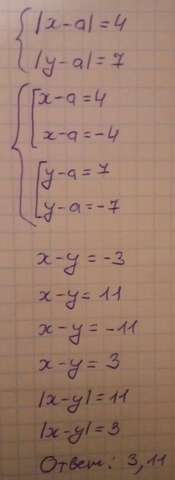 |x-a|=4
|y-a|=7
x-a=4
x-a=-4
y-a=7
y-a=-7
x-y=-3
x-y=11
x-y=-11
x-y=3
|x-y|=11
|x-y|=3
Ответ: 3, 11